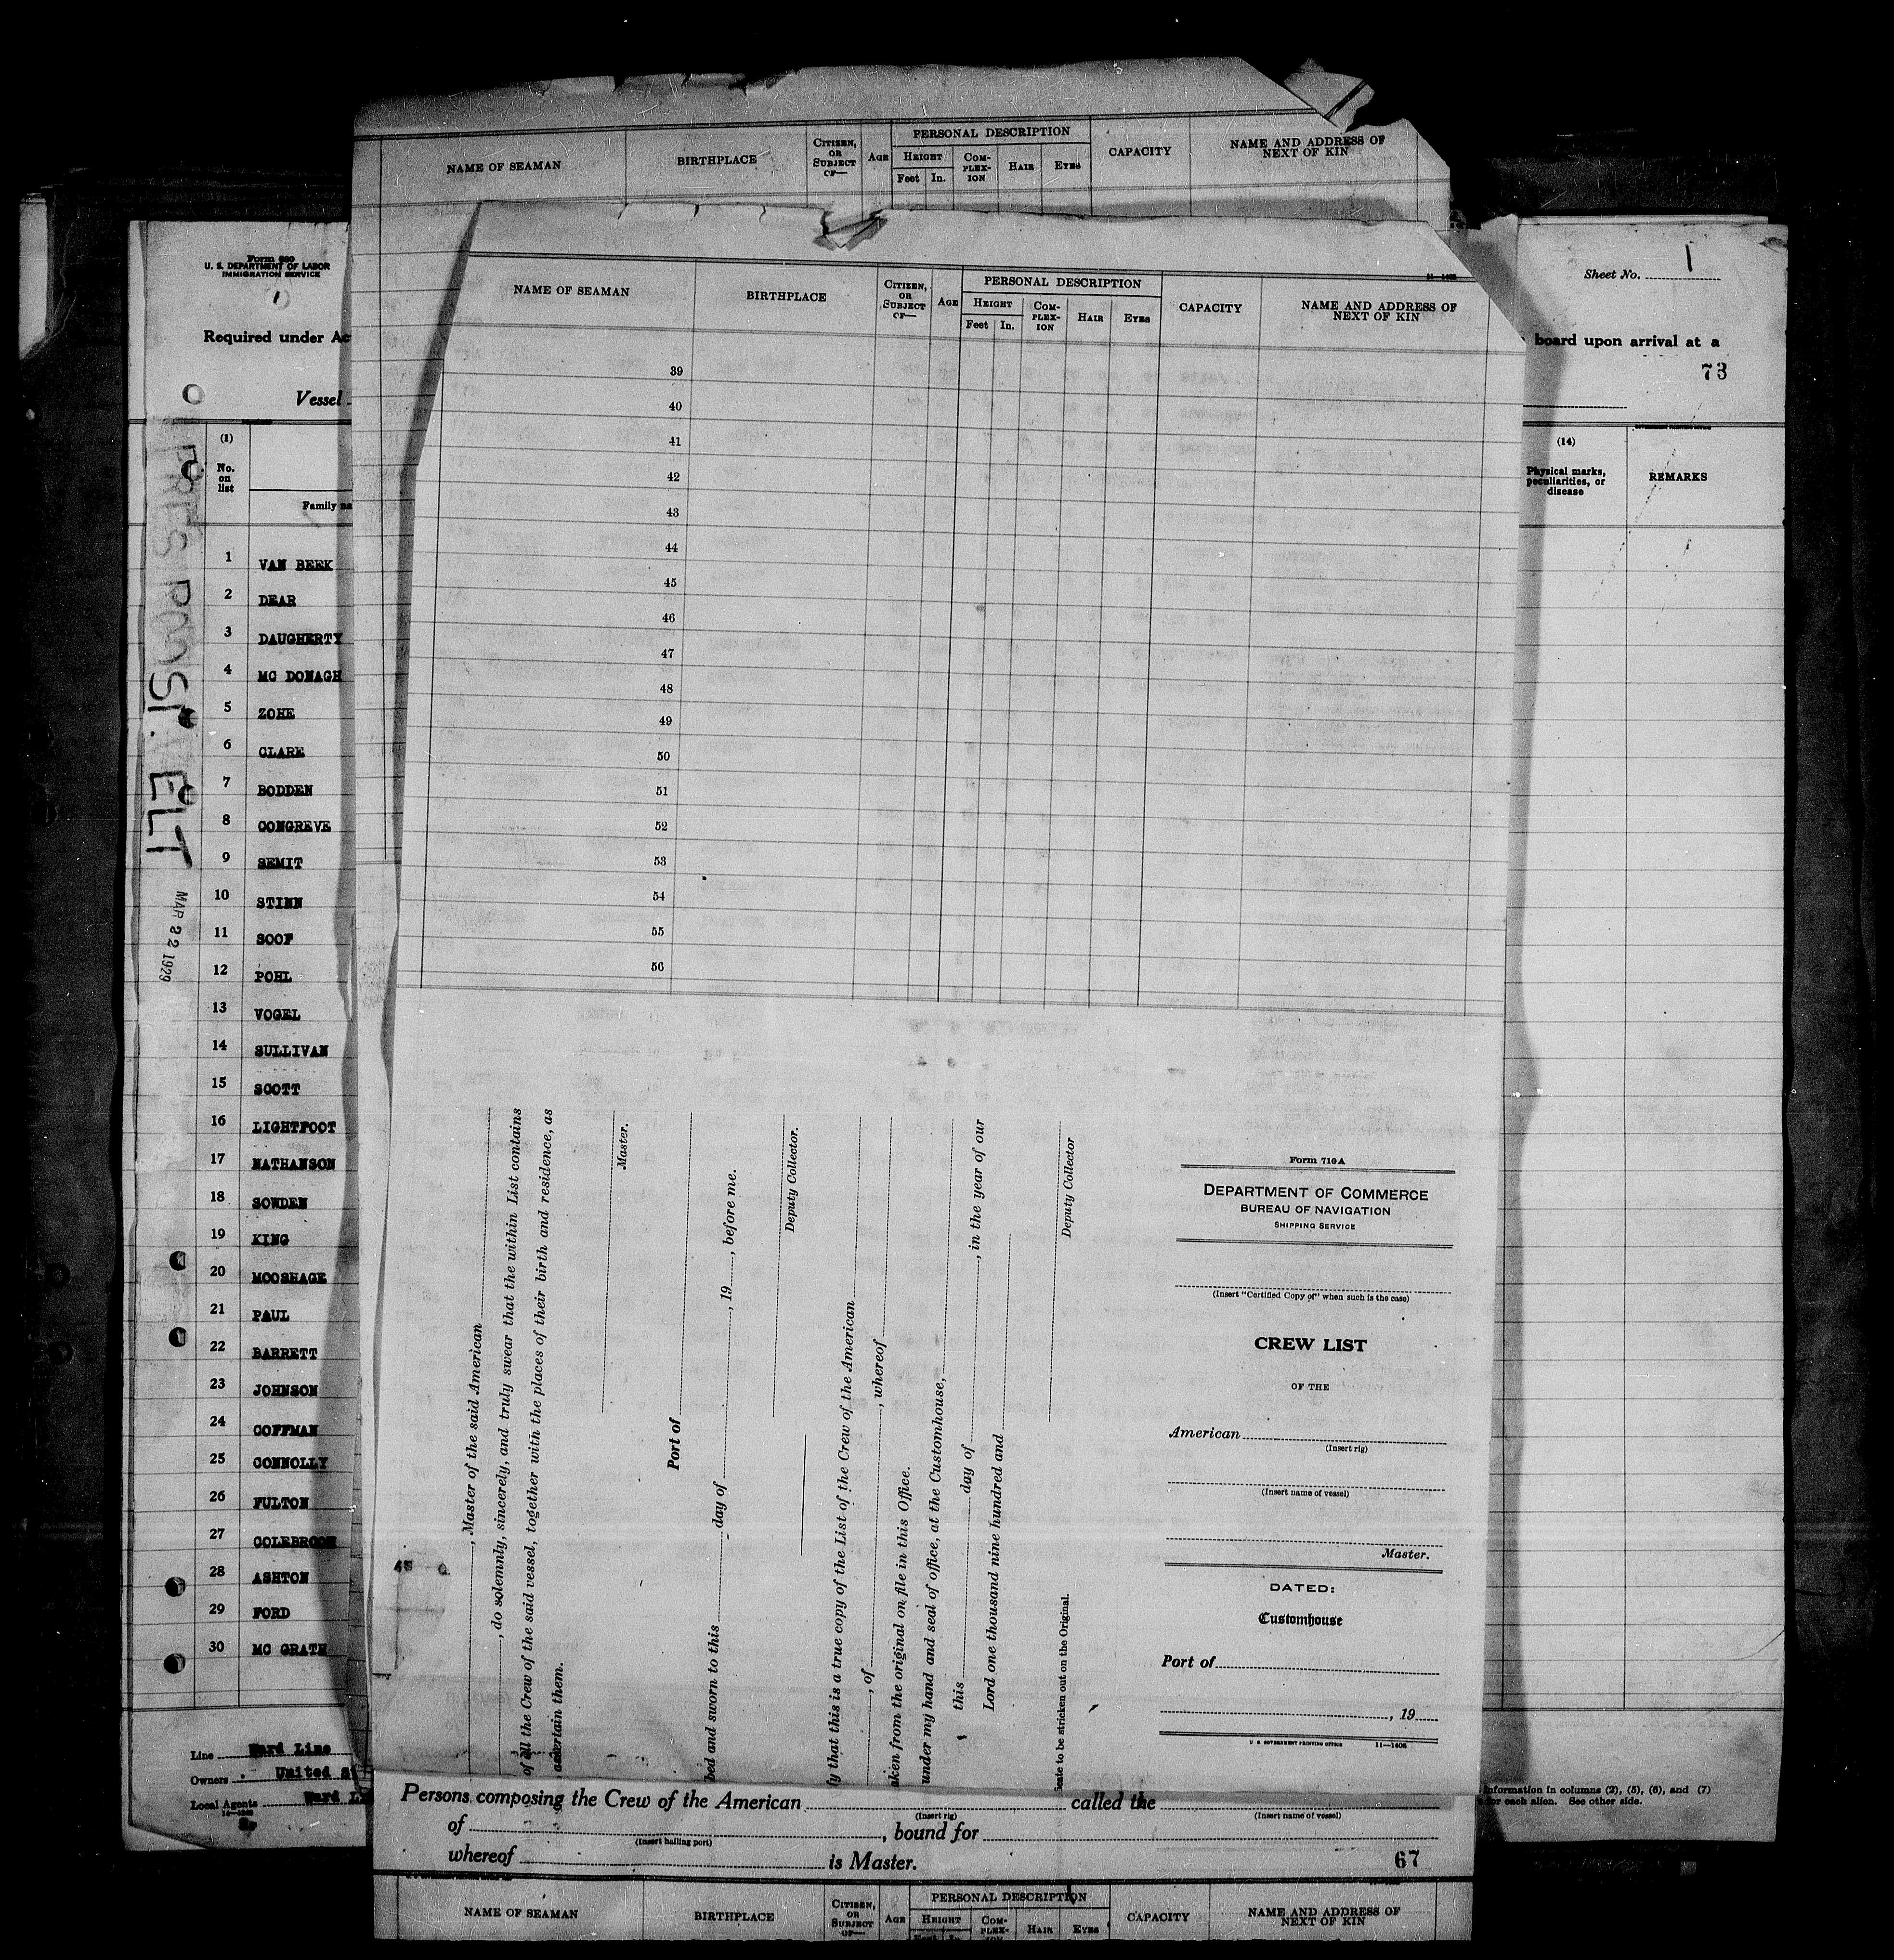 NAME OF SEAMAN
BIRTHPLACE
CITIZEN, OR SUBJECT OF—
AGE
PERSONAL DESCRIPTION
HEIGHT
Feet In.
COM-PLEX-ION
HAIR
EYES
CAPACITY
NAME AND ADDRESS OF NEXT OF KIN
U. S. DEPARTMENT OF LABOR
IMMIGRATION SERVICE
Required under Ac
Vessel
Sheet No. 1
board upon arrival at a
73
(1)
No. on list
Family na
(14)
Physical marks, peculiarities, or disease
REMARKS
MAR 22 1929
1 VAN BEEK
2 DEAR
3 DAUGHERTY
4 MC DONAGH
5 ZOHE
6 CLARE
7 BODDEN
8 CONGREVE
9 SEMIT
10 STINN
11 SOOF
12 POHL
13 VOGEL
14 SULLIVAN
15 SCOTT
16 LIGHTFOOT
17 NATHANSON
18 SOWDEN
19 KING
20 MOOSHAGE
21 PAUL
22 BARRETT
23 JOHNSON
24 COFFMAN
25 CONNOLLY
26 FULTON
27 COLEBROOK
28 ASHTON
29 FORD
30 MC GRATH
Line Ward Line
Owners United S
Local Agents Ward L
NAME OF SEAMAN
BIRTHPLACE
CITIZEN, OR SUBJECT OF—
AGE
PERSONAL DESCRIPTION
HEIGHT
Feet In.
COM-PLEX-ION
HAIR
EYES
CAPACITY
NAME AND ADDRESS OF NEXT OF KIN
11—1408
39
40
41
42
43
44
45
46
47
48
49
50
51
52
53
54
55
56
, Master of the said American
, do solemnly, sincerely, and truly swear that the within List contains
of all the Crew of the said vessel, together with the places of their birth and residence, as
ascertain them.
Master.
Port of
bed and sworn to this day of , 19 , before me.
Deputy Collector.
fy that this is a true copy of the List of the Crew of the American
, of , whereof
aken from the original on file in this Office.
under my hand and seal of office, at the Customhouse,
this day of , in the year of our
Lord one thousand nine hundred and
Deputy Collector
icate to be stricken out on the Original.
Form 710A
DEPARTMENT OF COMMERCE
BUREAU OF NAVIGATION
SHIPPING SERVICE
(Insert "Certified Copy of" when such is the case)
CREW LIST
OF THE
American
(Insert rig)
(Insert name of vessel)
Master.
DATED:
Customhouse
Port of
, 19
U. S. GOVERNMENT PRINTING OFFICE 11—1408
information in columns (2), (5), (6), and (7)
for each alien. See other side.
Persons composing the Crew of the American called the
(Insert rig) (Insert name of vessel)
of , bound for
(Insert hailing port)
whereof is Master.
67
NAME OF SEAMAN
BIRTHPLACE
CITIZEN, OR SUBJECT OF—
AGE
PERSONAL DESCRIPTION
HEIGHT
COM-PLEX-ION
HAIR
EYES
CAPACITY
NAME AND ADDRESS OF NEXT OF KIN